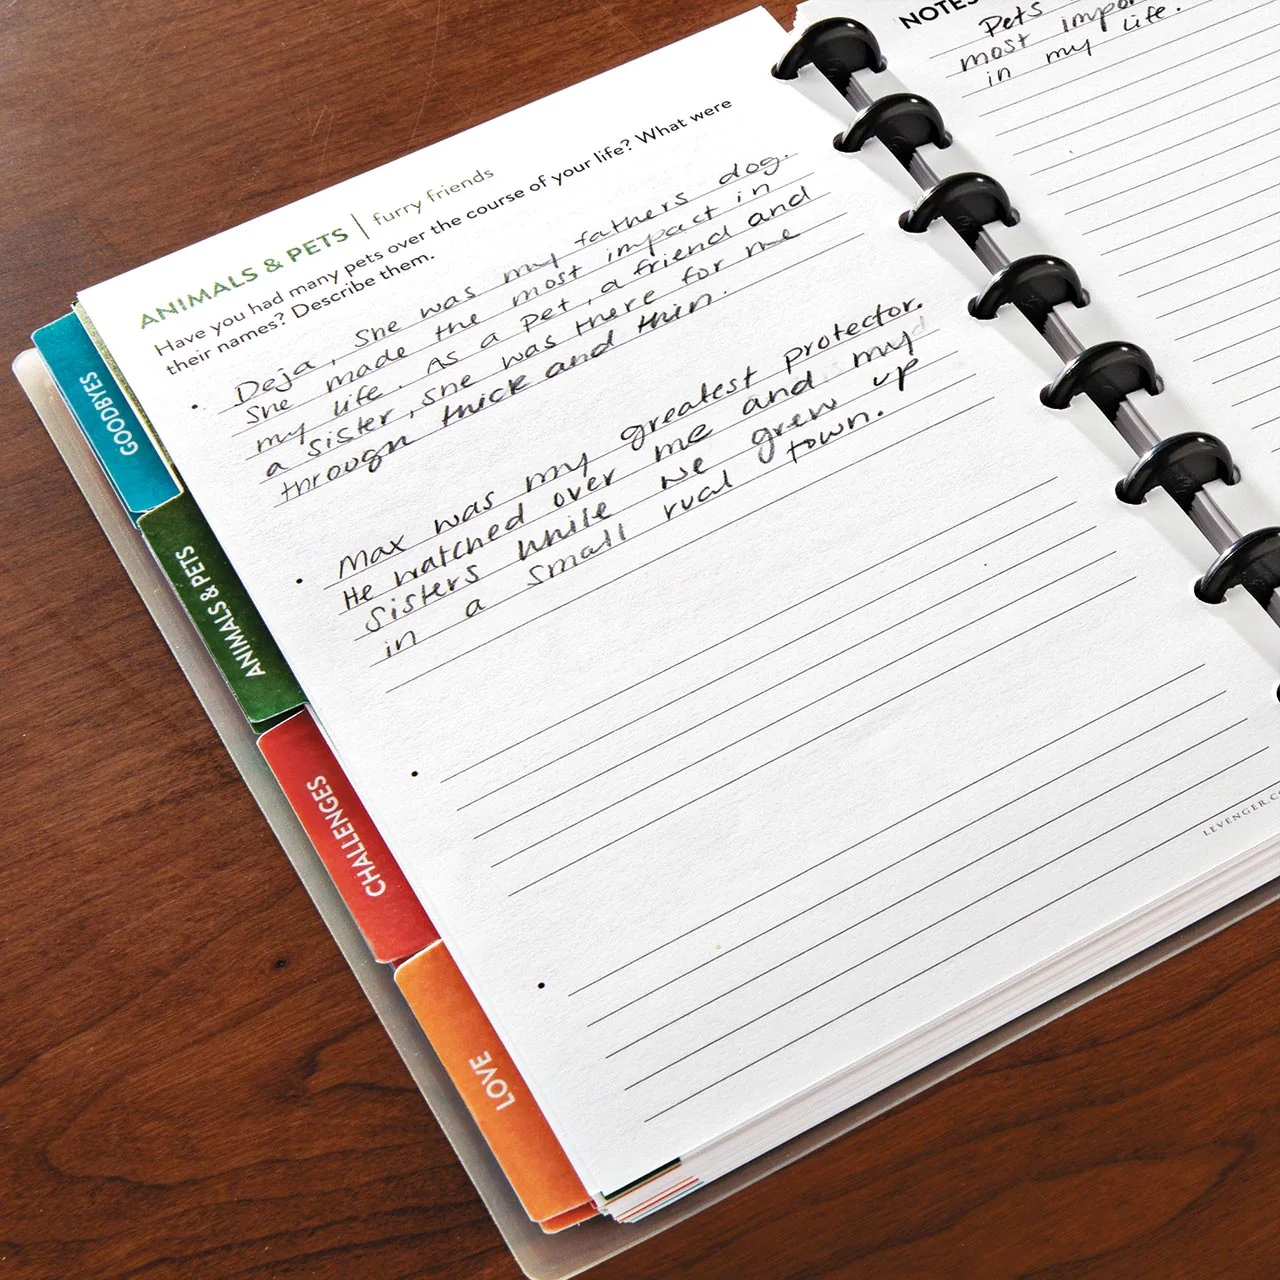 ANIMALS & PETS | furry friends
Have you had many pets over the course of your life? What were
their names? Describe them.
• Deja, She was my fathers dog.
She made the most impact in
my life. As a pet, a friend and
a sister, she was there for me
through thick and thin.
• Max was my greatest protector.
He watched over me and my
sisters while we grew up
in a small rual town.
•
•
GOODBYES
ANIMALS & PETS
CHALLENGES
LOVE
NOTES
Pets
most impo
in my life.
LEVENGER.CO